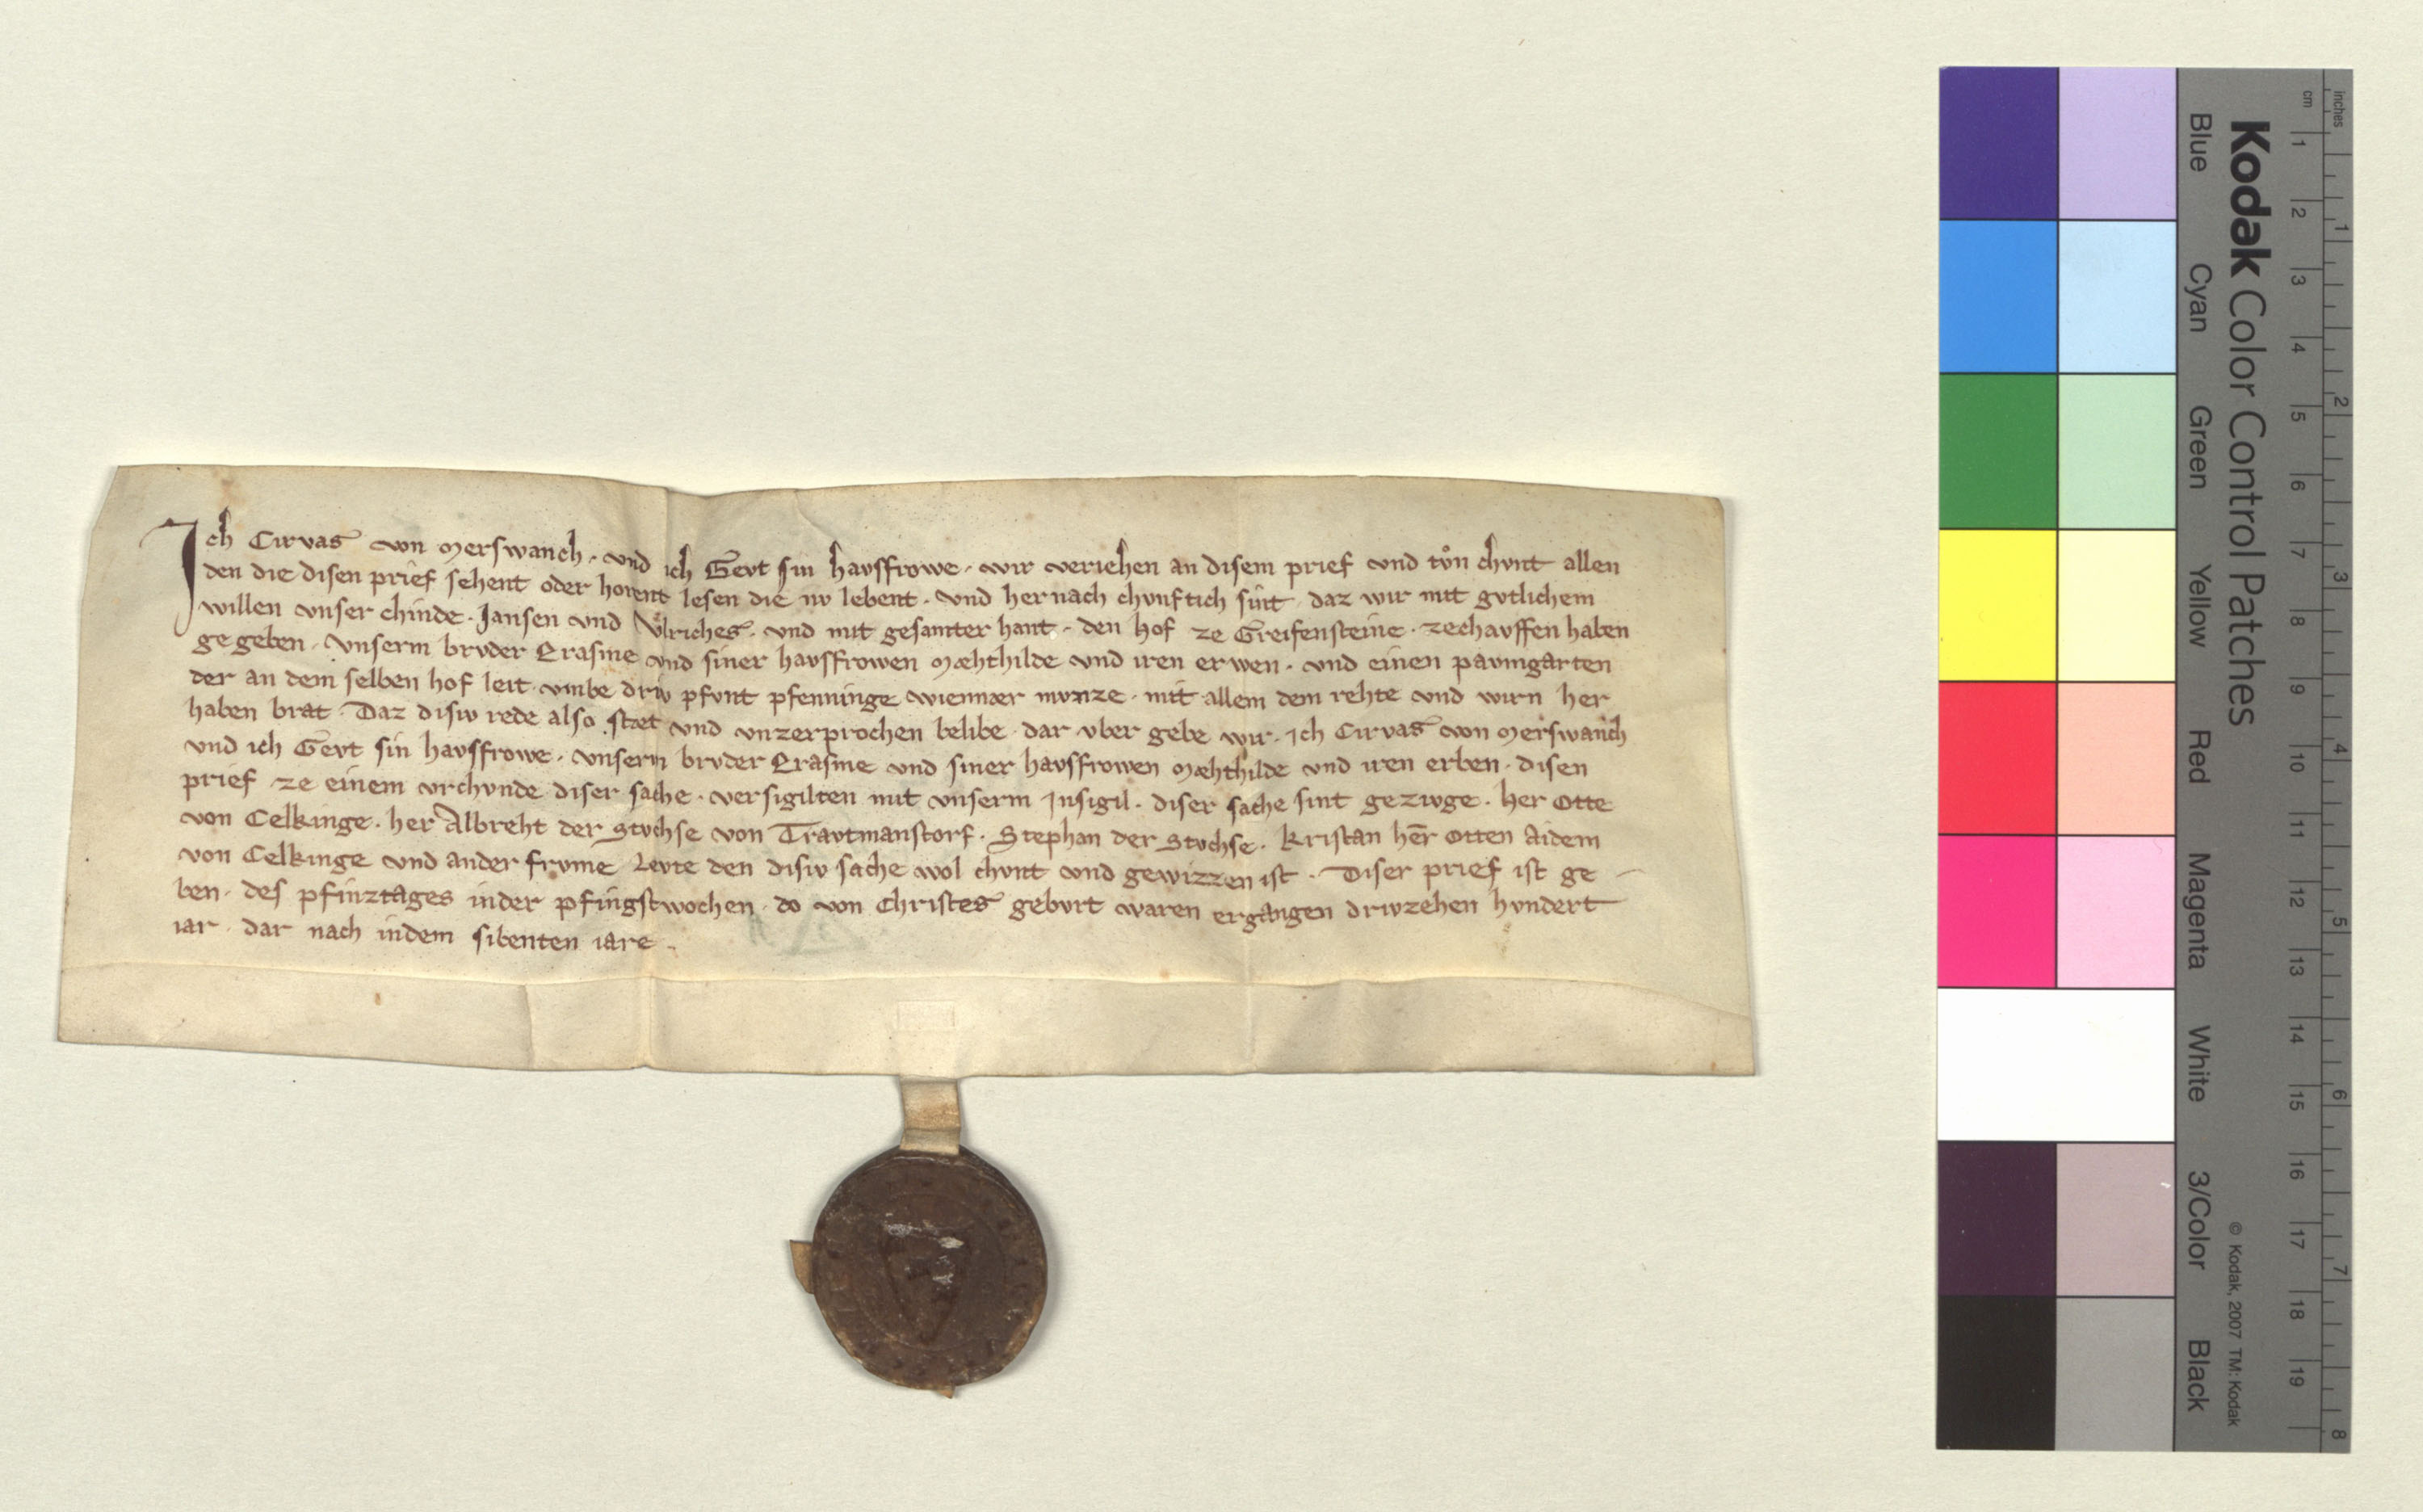 Ich Cirvas von Merswanch · und ich Gevt sin havsfrowe · wir veriehen an disem prief und tůn chvnt allen
den die disen prief sehent oder horent lesen die nv lebent · und her nach chvnftich sint · daz wir mit gvtlichem
willen vnser chinde · Jansen und Vͦlriches · und mit gesamter hant · den hof ze Greifensteine · zechavffen haben
ge geben · Vnserm brvder Erasme und siner havsfrowen Mæhthilde und iren erwen · und einen pavmgarten
der an dem selben hof leit · vmbe driv pfvnt pfenninge wiennær mvnze · mit allem dem rehte und wirn her
haben brat · Daz disiv rede also stæt und unzerprochen belibe · dar vber gebe wir · Ich Cirvas von Merswanch
und ich Gevt sin havsfrowe · vnserm brvder Erasme und siner havsfrowen Mæhthilde und iren erben · disen
prief ze einem vrchvnde diser sache · versigilten mit vnserm Insigil · diser sache sint gezivge · her Otte
von Celkinge · her Albreht der Stvchse von Travtmanstorf · Stephan der Stvchse · kristan her̄ Otten Aidem
von Celkinge und ander frvme Levte den disiv sache wol chvnt und gewizzen ist · Diser prief ist ge
ben · des pfinztages inder pfingstwochen · do von Christes gebvrt waren ergangen drivzehen hvndert
iar · dar nach indem sibenten iare ·
Kodak Color Control Patches
Blue Cyan Green Yellow Red Magenta White 3/Color Black
© Kodak, 2007 TM: Kodak
inches 1 2 3 4 5 6 7 8
cm 1 2 3 4 5 6 7 8 9 10 11 12 13 14 15 16 17 18 19